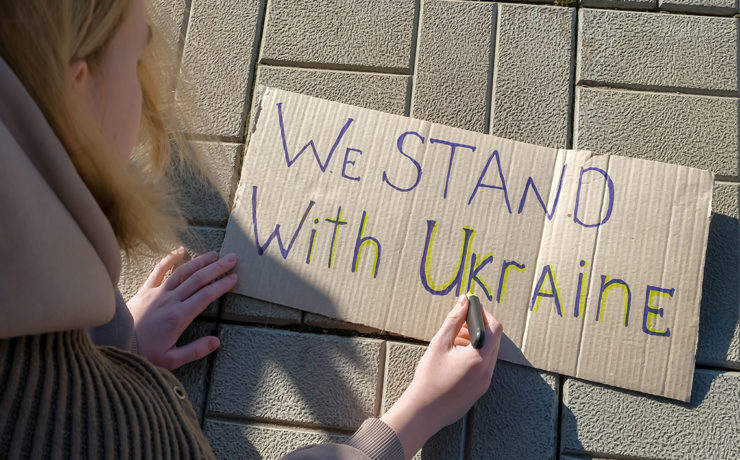 We STAND
With Ukraine